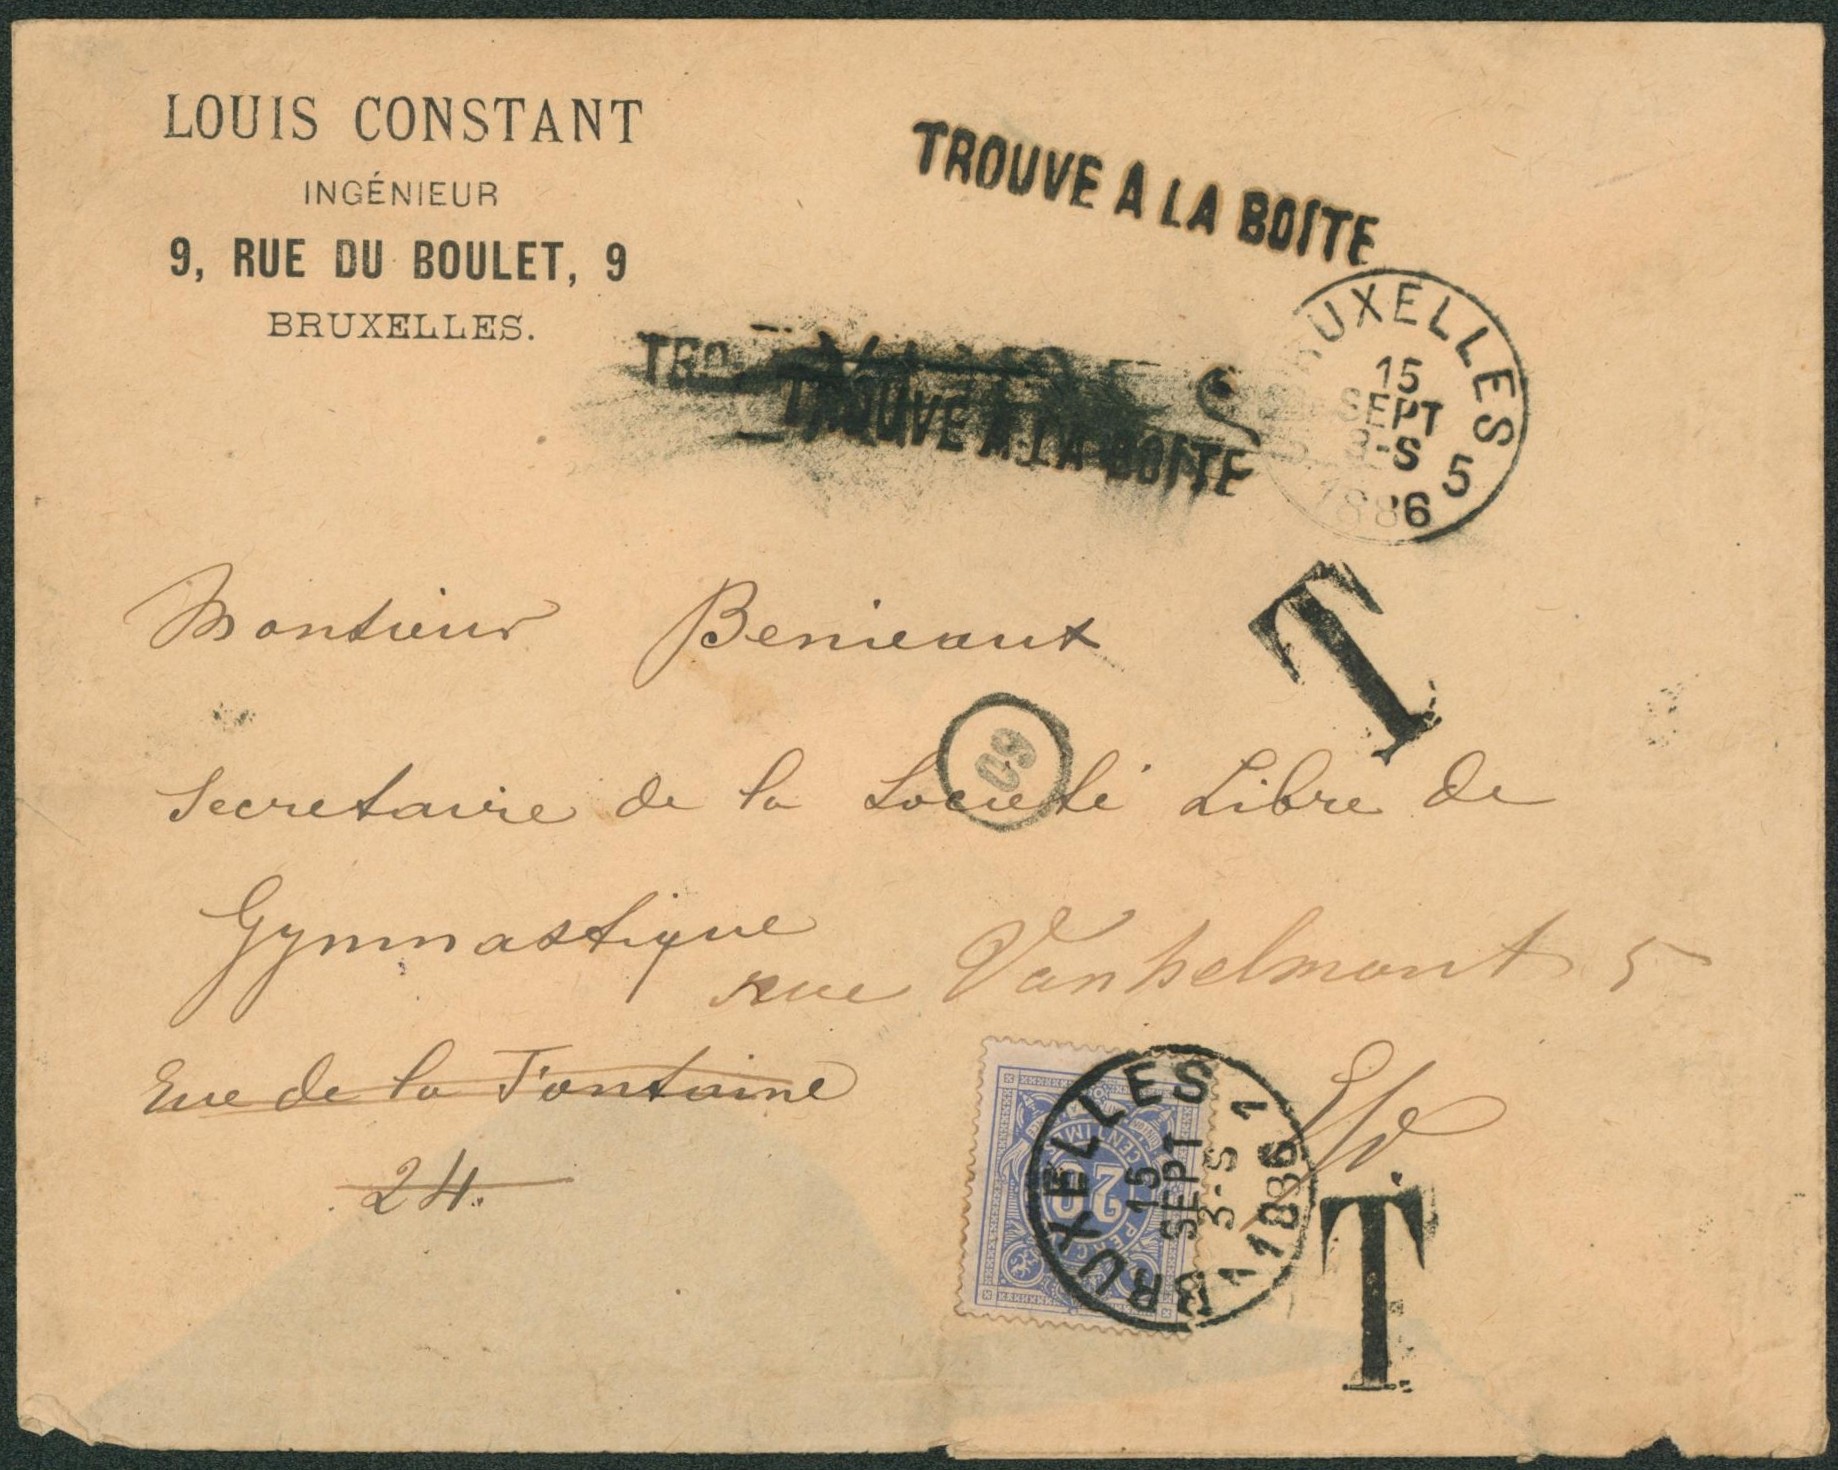 LOUIS CONSTANT
INGÉNIEUR
9, RUE DU BOULET, 9
BRUXELLES.
TROUVE A LA BOITE
TRO
TROUVE A LA BOITE
BRUXELLES 5
15
SEPT
8-S
1886
T
Monsieur Benieaux
60
Secretaire de la Société Libre de
Gymnastique
rue Vanhelmont 5
Rue de la Fontaine
24.
BRUXELLES 1
15
SEPT
3-S
1 1886
20
CENTIM
T